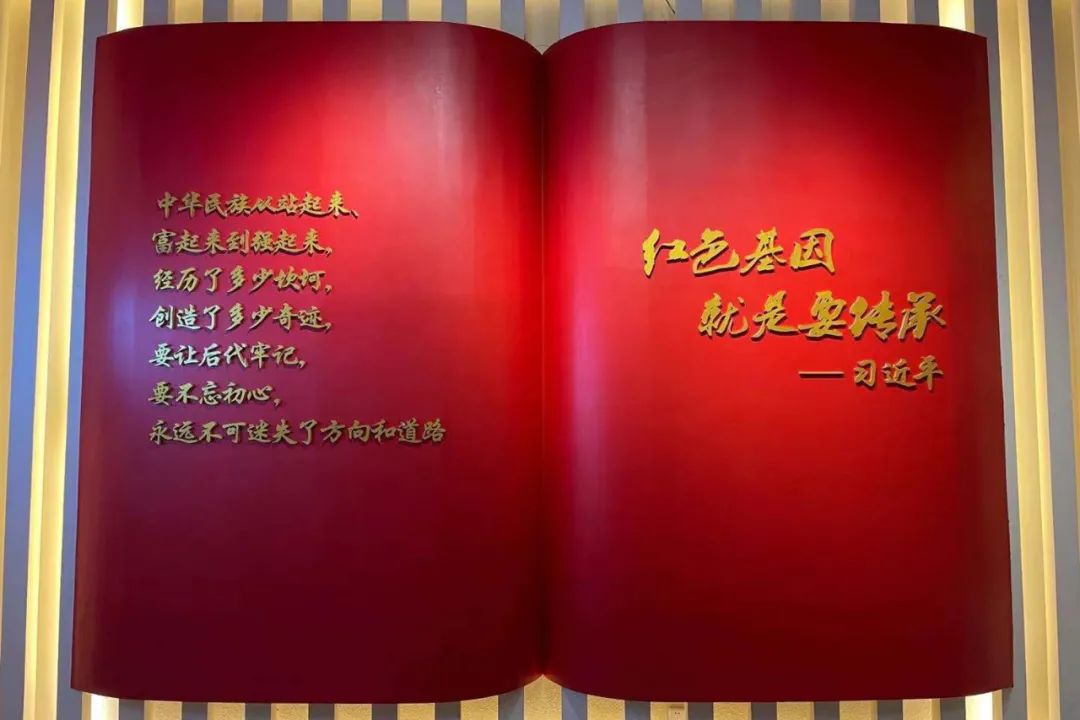 中华民族从站起来、
富起来到强起来，
经历了多少坎坷，
创造了多少奇迹，
要让后代牢记，
要不忘初心，
永远不可迷失了方向和道路
红色基因
就是要传承
——习近平